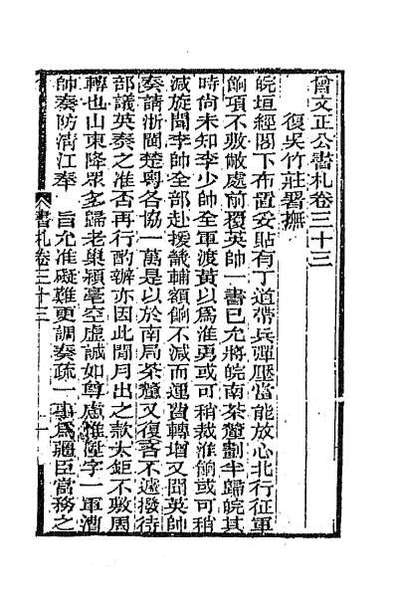 曾文正公書札卷三十三
復吳竹莊署撫
皖垣經閣下布置妥貼有丁道帶兵彈壓當能放心北行征軍
餉項不敷敝處前覆英帥一書已允將皖南茶釐劃半歸皖其
時尚未知李少帥全軍渡黃以爲淮勇或可稍裁淮餉或可稍
減旋聞李帥全部赴援畿輔額餉不減而運費轉增又聞英帥
奏請浙閩楚粵各協一萬是以於南局茶釐又復吝不遽撥待
部議英奏之准否再行酌辦亦因此間月出之款太鉅不敷周
轉也山東降眾多歸老巢潁亳空虛誠如尊慮惟健字一軍漕
帥奏防清江奉　旨允准礙難更調奏疏一事爲疆臣當務之
書札卷三十三
一